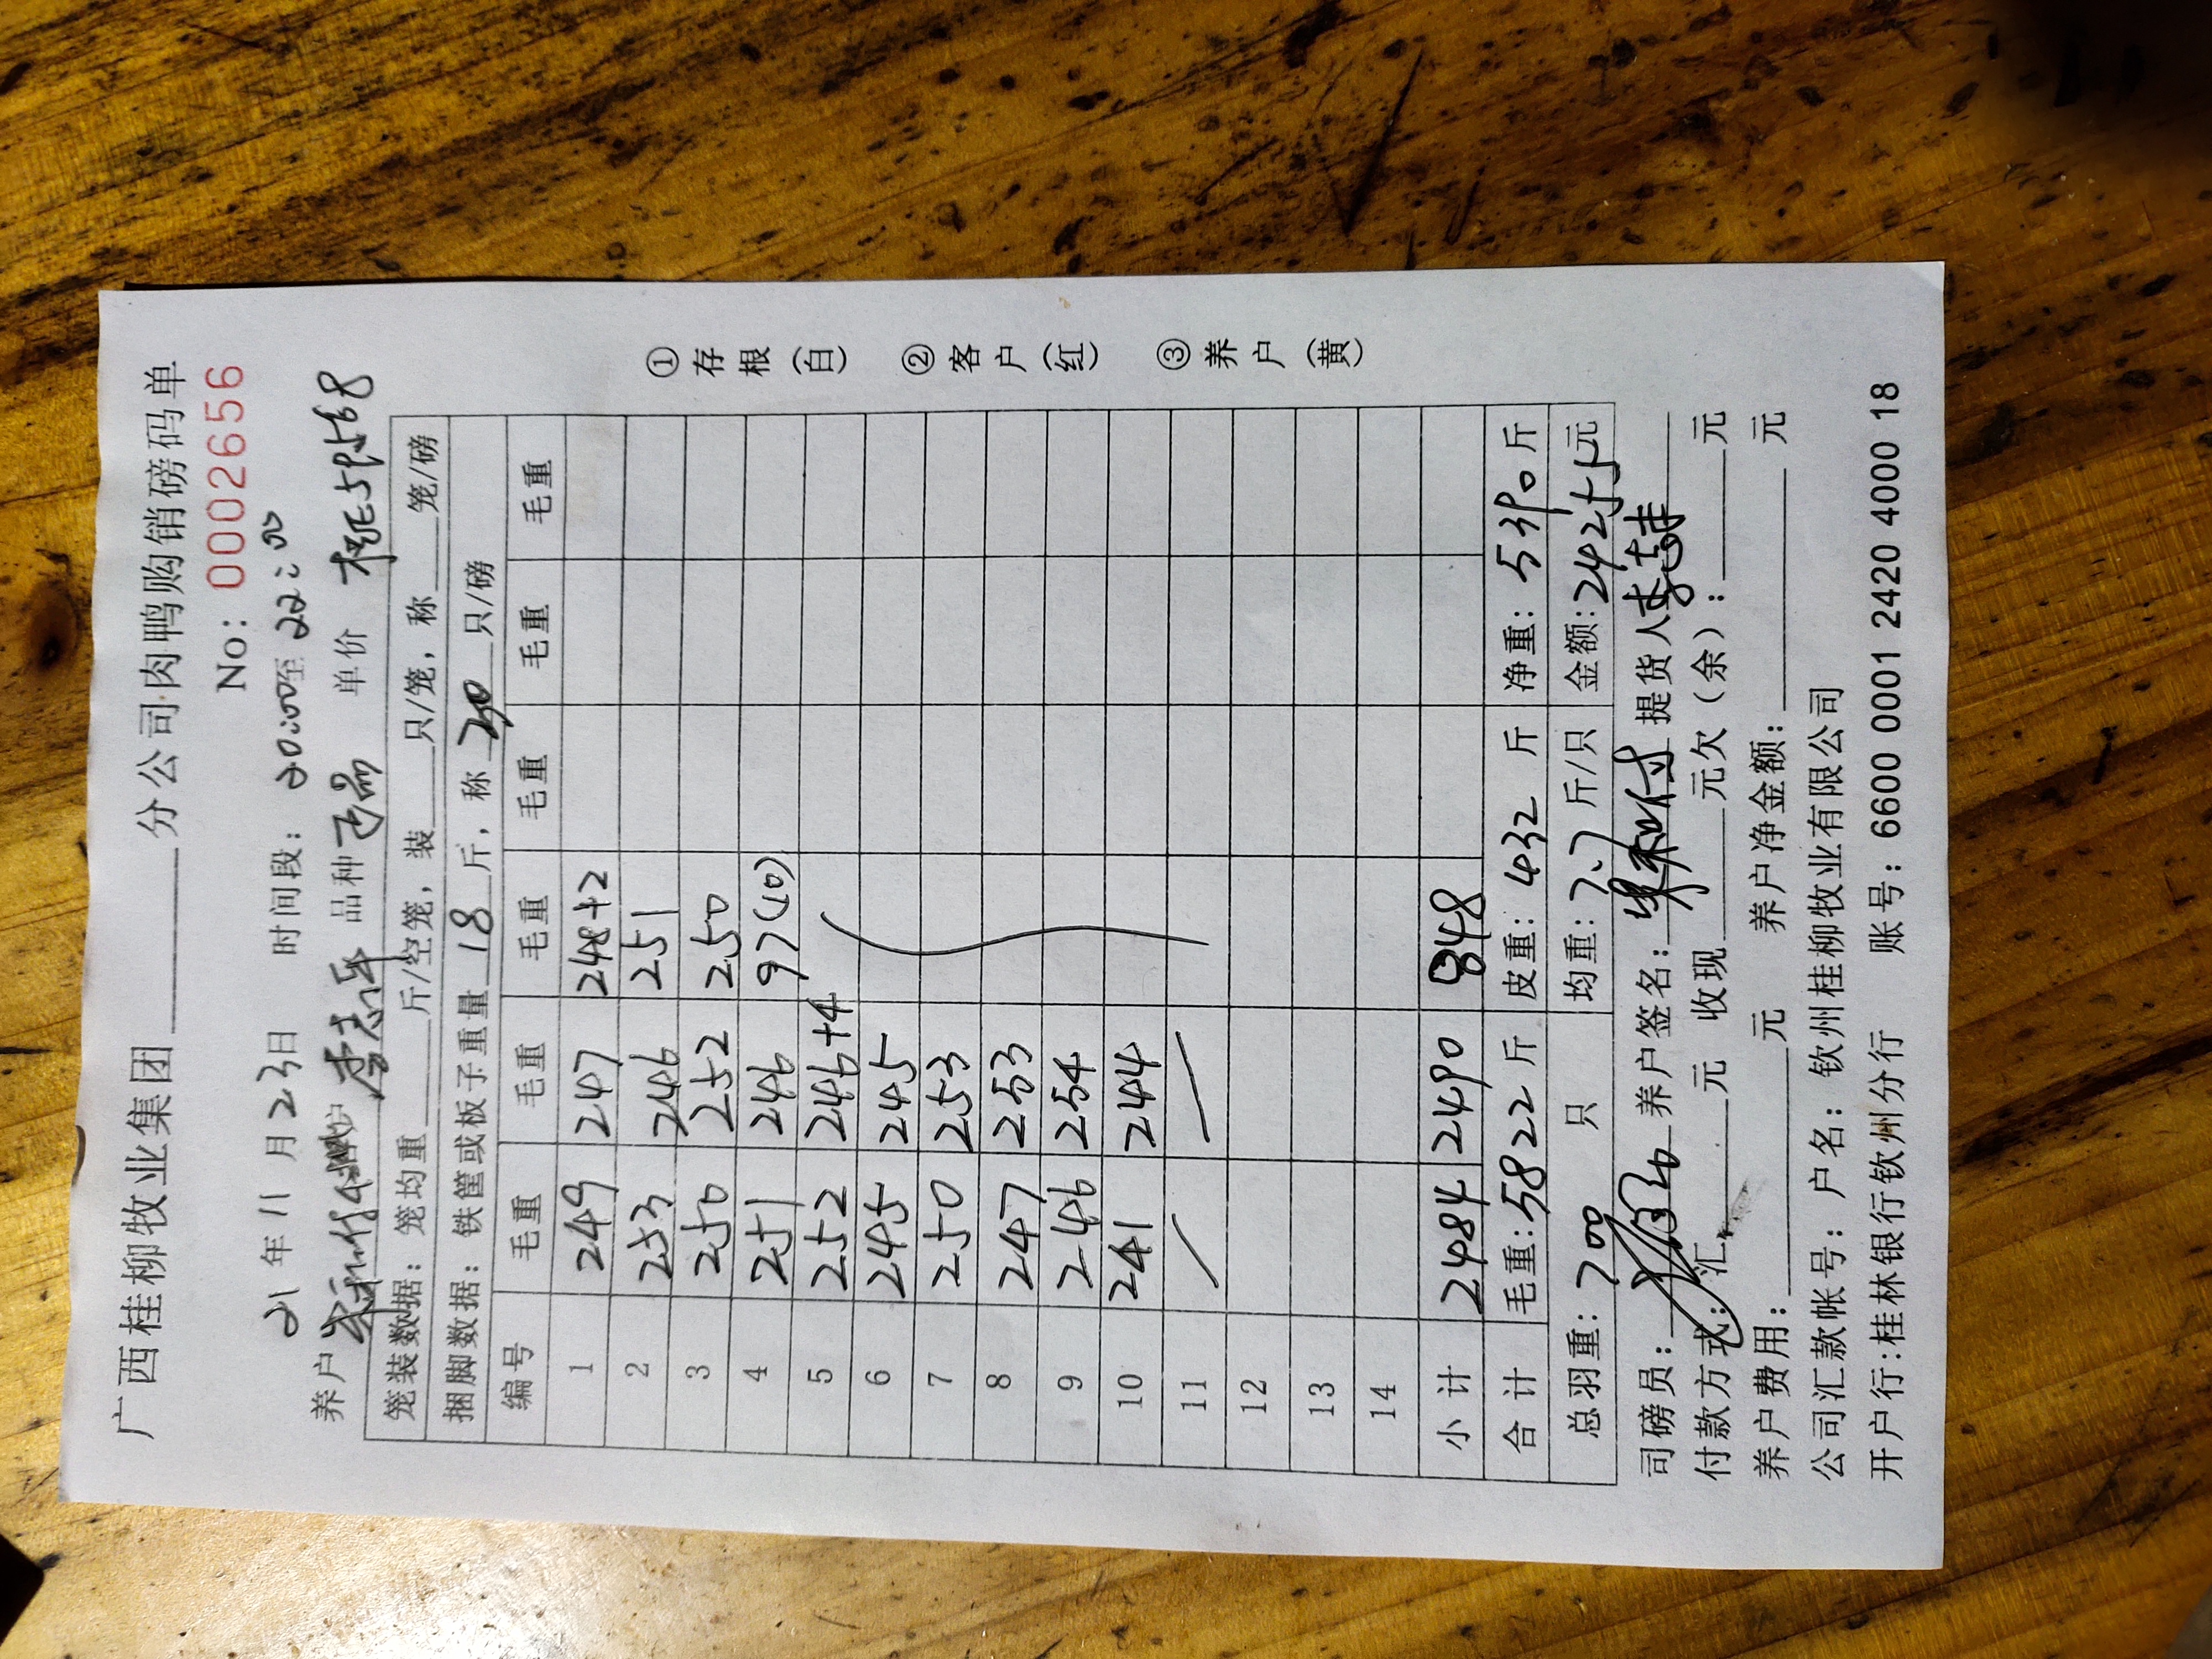 广西桂柳牧业集团 分公司·肉鸭购销磅码单
No: 0002656
21年11月23日 时间段: 20:00至22:00
养户 李志 品种 单价
笼装数据: 笼均重 斤/空笼, 装 只/笼, 称 笼/磅
捆脚数据: 铁筐或板子重量 18 斤, 称 30 只/磅
编号 毛重 毛重 毛重 毛重 毛重 毛重
1 249 247 248+2
2 253 246 251
3 250 252 250
4 251 246 97(10)
5 252 246+4
6 245 245
7 250 253
8 247 253
9 246 254
10 241 244
11
12
13
14
小计 2484 2490 848
合计 毛重: 5822 斤 皮重: 432 斤 净重: 5390 斤
总羽重: 700 只 均重: 7.7 斤/只 金额: 24255元
司磅员: 养户签名: 提货人
付款方式: 汇 元 收现 元欠(余): 元
养户费用: 元 养户净金额: 元
公司汇款帐号: 户名: 钦州桂柳牧业有限公司
开户行:桂林银行钦州分行 账号: 6600 0001 2420 4000 18
①存根(白) ②客户(红) ③养户(黄)